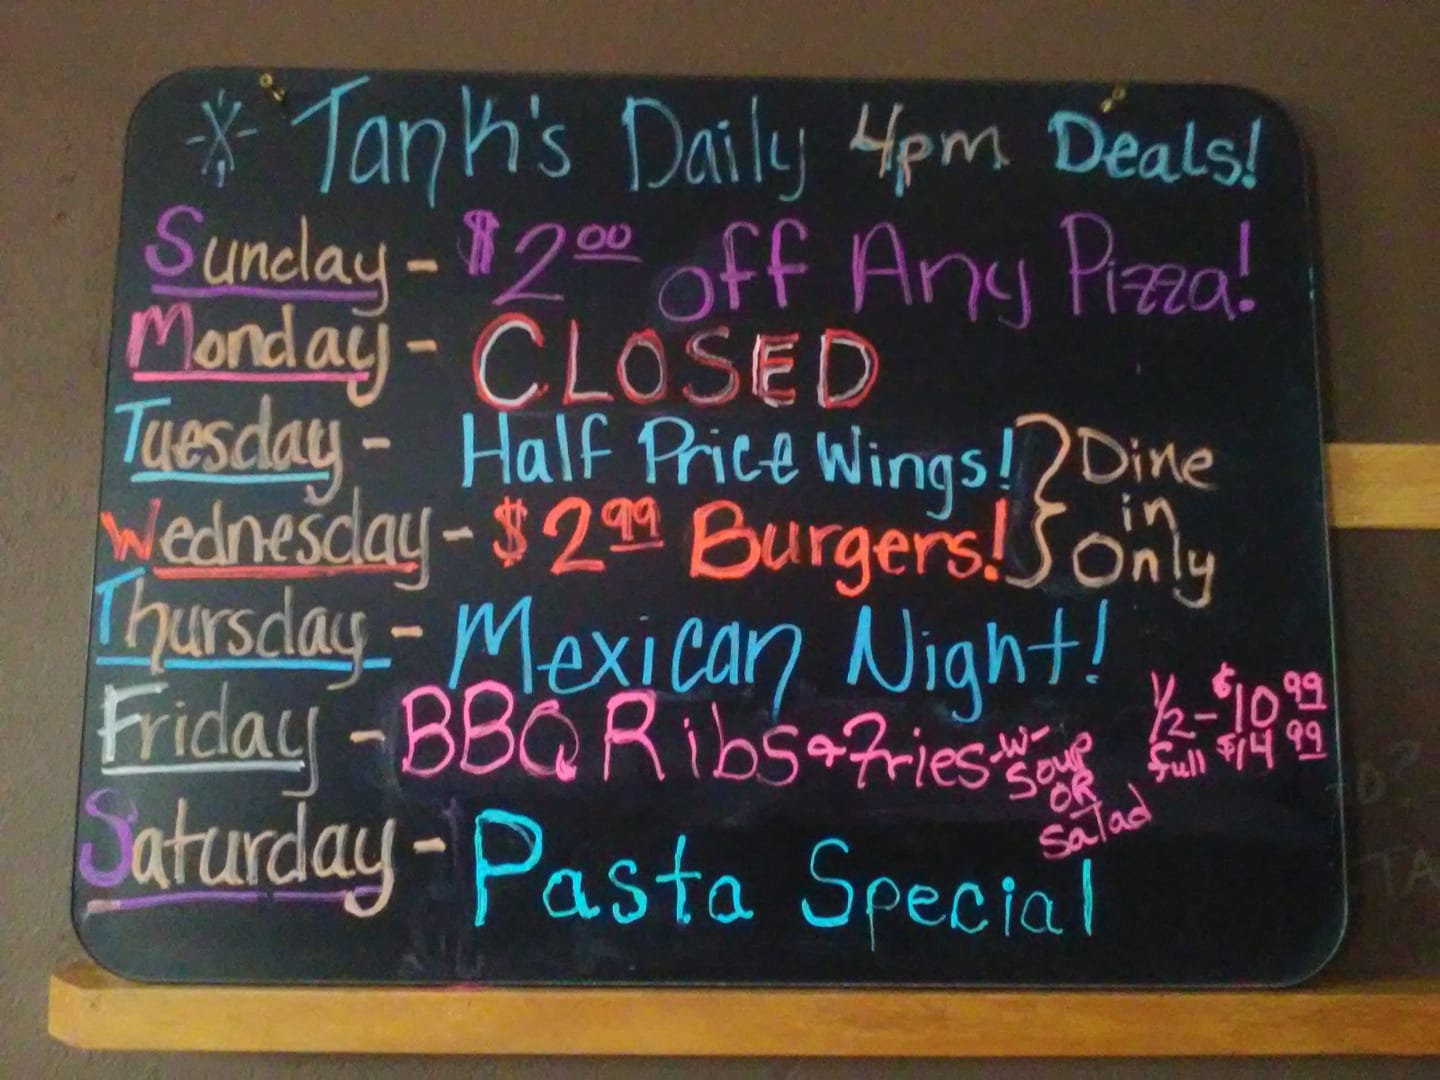 Tank's Daily 4pm Deals!
Sunday - $2.00 off Any Pizza!
Monday - CLOSED
Tuesday - Half Price Wings! } Dine
in
Wednesday - $2.99 Burgers! } Only
Thursday - Mexican Night!
Friday - BBQ Ribs & Fries -w- Soup OR Salad
1/2 - $10.99
full $14.99
Saturday - Pasta Special